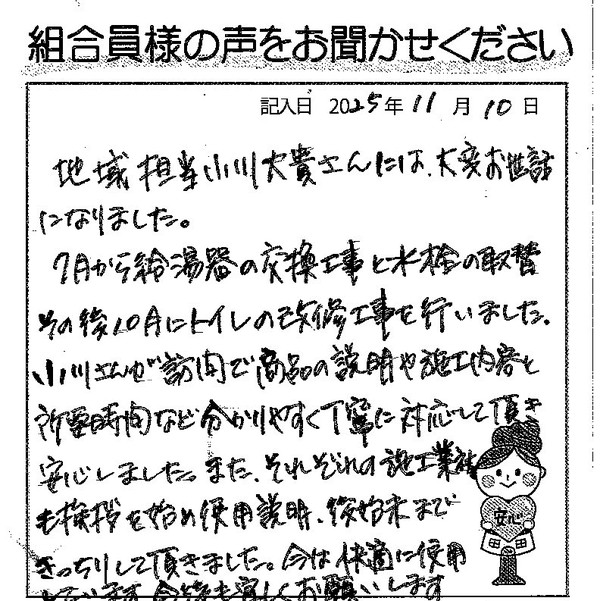 組合員様の声をお聞かせください
記入日 2025年 11月 10日
地域担当小川大貴さんには、大変お世話
になりました。
7月から給湯器の交換工事と水栓の取替
その後10月にトイレの改修工事を行いました。
小川さんが訪問で商品の説明や施工内容と
所要時間など分かりやすく丁寧に対応して頂き
安心しました。また、それぞれの施工業者
も挨拶を始め使用説明、後始末まで
きっちりして頂きました。今は快適に使用
しています。今後も宜しくお願いします
安心